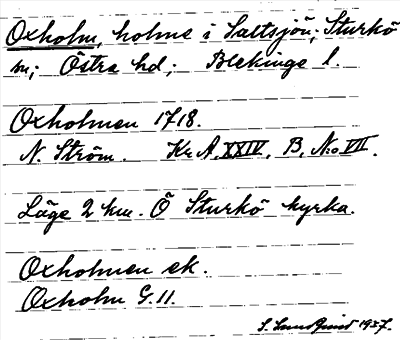 Oxholm, holme i Saltsjön; Sturkö
sn; Östra hd; Blekinge l.
Oxholmen 1718.
N. Ström. Kr. A. XXIV, B, No VII.
Läge 2 km. Ö Sturkö kyrka.
Oxholmen ek.
Oxholm G. 11.
S. Lundquist 1937.